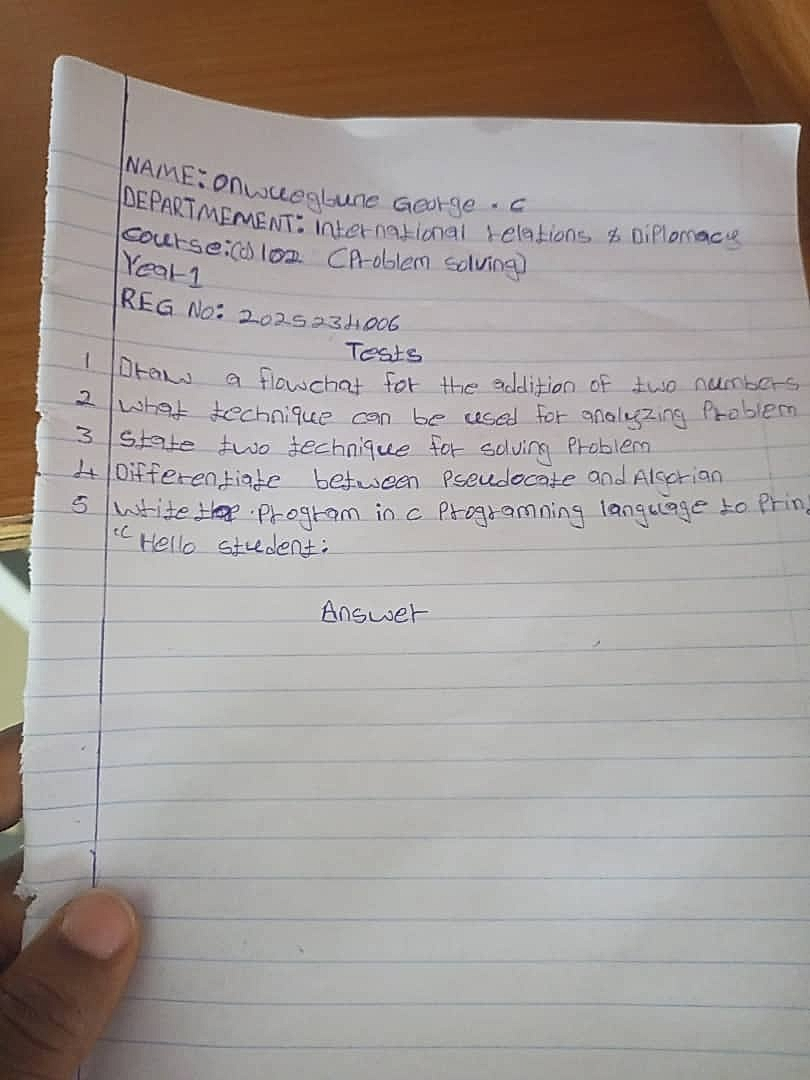 NAME: Onwuegbune George . C
DEPARTMEMENT: International relations & Diplomacy
course: 102 (Problem solving)
Year 1
REG No: 2025234006
Tests
1 Draw a flowchat for the addition of two numbers
2 what technique can be used for analyzing Problem
3 State two technique for solving Problem
4 Differentiate between Pseudocate and Algorian
5 Write the . Program in c Programning language to Prin
"Hello student:
Answer